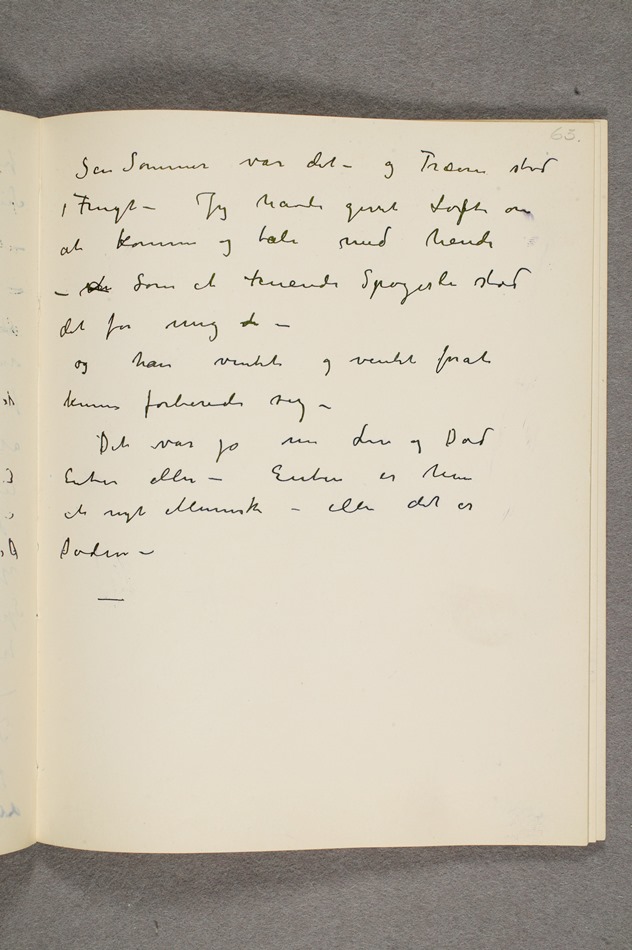 63.
Sen Sommer var det – og Træerne stod
i Frugt – Jeg havde givet Løfte om
at komme og tale med hende
– Som et truende Spøgelse stod
det for mig –
og han ventet og ventet forat
kunne forberede sig –
Det var jo om Liv og Død
Enten eller – Enten er hun
et nyt Menneske – eller det er
Døden –
—